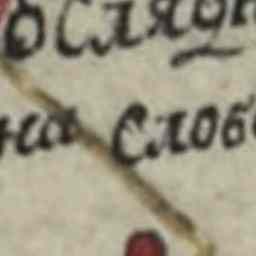 ослядн
на слоб